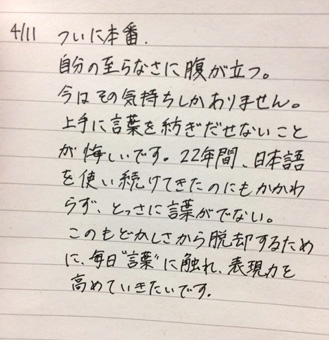 4/11 ついに本番.
自分の至らなさに腹が立つ。
今はその気持ちしかありません。
上手に言葉を紡ぎだせないこと
が悔しいです。22年間、日本語
を使い続けてきたのにもかかわ
らず、とっさに言葉がでない。
このもどかしさから脱却するため
に、毎日"言葉"に触れ、表現力を
高めていきたいです.